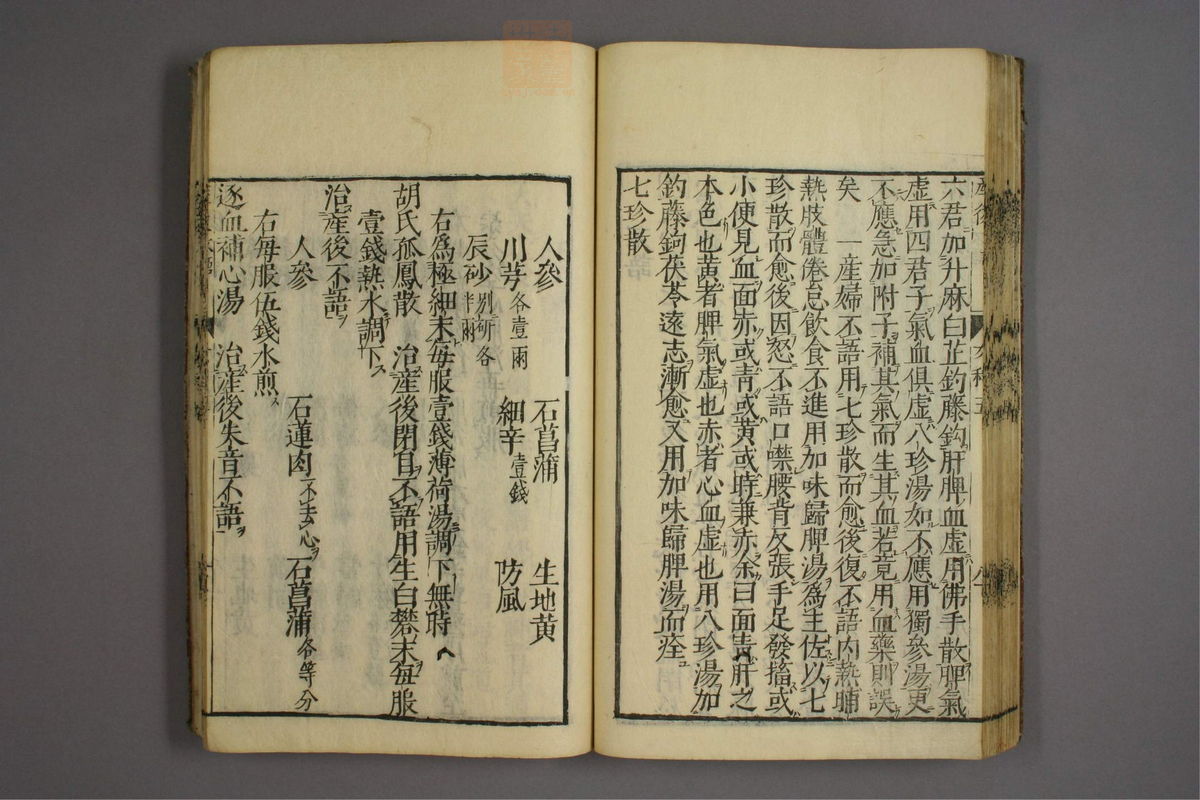 六君加升麻白芷鈎藤鈎肝脾血虛用佛手散脾氣
虛用四君子氣血俱虛八珍湯如不應用獨參湯更
不應急加附子補其氣而生其血若竟用血藥則誤
矣　一産婦不語用七珍散而愈後復不語内熱晡
熱肢體倦怠飲食不進用加味歸脾湯為主佐以七
珍散而愈後因怒不語口噤腰背反張手足發搐或
小便見血面赤或青或黄或時兼赤余曰面青肝之
本色也黄者脾氣虛也赤者心血虛也用八珍湯加
鈎藤鈎茯苓遠志漸愈又用加味歸脾湯而痊
七珍散
人參　石菖蒲　生地黄
川芎各壹兩　細辛壹錢　防風
辰砂別研各半兩
右為極細末每服壹錢薄荷湯調下無時
胡氏孤鳳散　治産後閉目不語用生白礬末每服
壹錢熱水調下
治産後不語
人參　石蓮肉不去心　石菖蒲各等分
右每服伍錢水煎
逐血補心湯　治産後失音不語